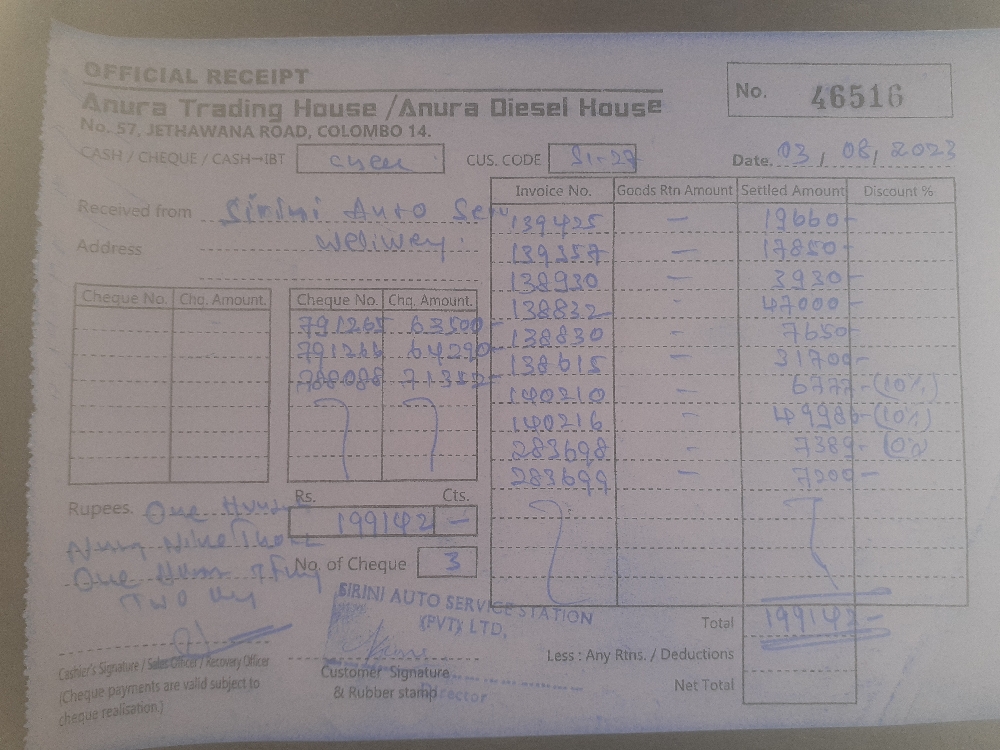 OFFICIAL RECEIPT
No. 46516
Anura Trading House /Anura Diesel House
No. 57, JETHAWANA ROAD, COLOMBO 14.
CASH / CHEQUE / CASH-IBT
CUS. CODE S1-27
Date. 03 / 08 / 2023
Received from Sirini Auto Serv
Address
Invoice No. Goods Rtn Amount Settled Amount Discount %
139425 — 19660-
139357 — 17850-
138930 — 3930-
138832 - 47000-
138830 - 7650-
138615 — 31700-
140210 — 6777-(10%)
140216 - 49986-(10%)
283698 - 7389-
283699 — 7200-
Cheque No. Chq. Amount. Cheque No. Chq. Amount.
791265 63500-
791266 64290-
788088 71352-
Rupees. One
One
Two
Rs. Cts.
199142 -
No. of Cheque 3
SIRINI AUTO SERVICE STATION
(PVT) LTD,
Director
Cashier's Signature / Sales Officer / Recovery Officer
(Cheque payments are valid subject to
cheque realisation.)
Customer Signature
& Rubber stamp
Total 199142-
Less : Any Rtns. / Deductions
Net Total